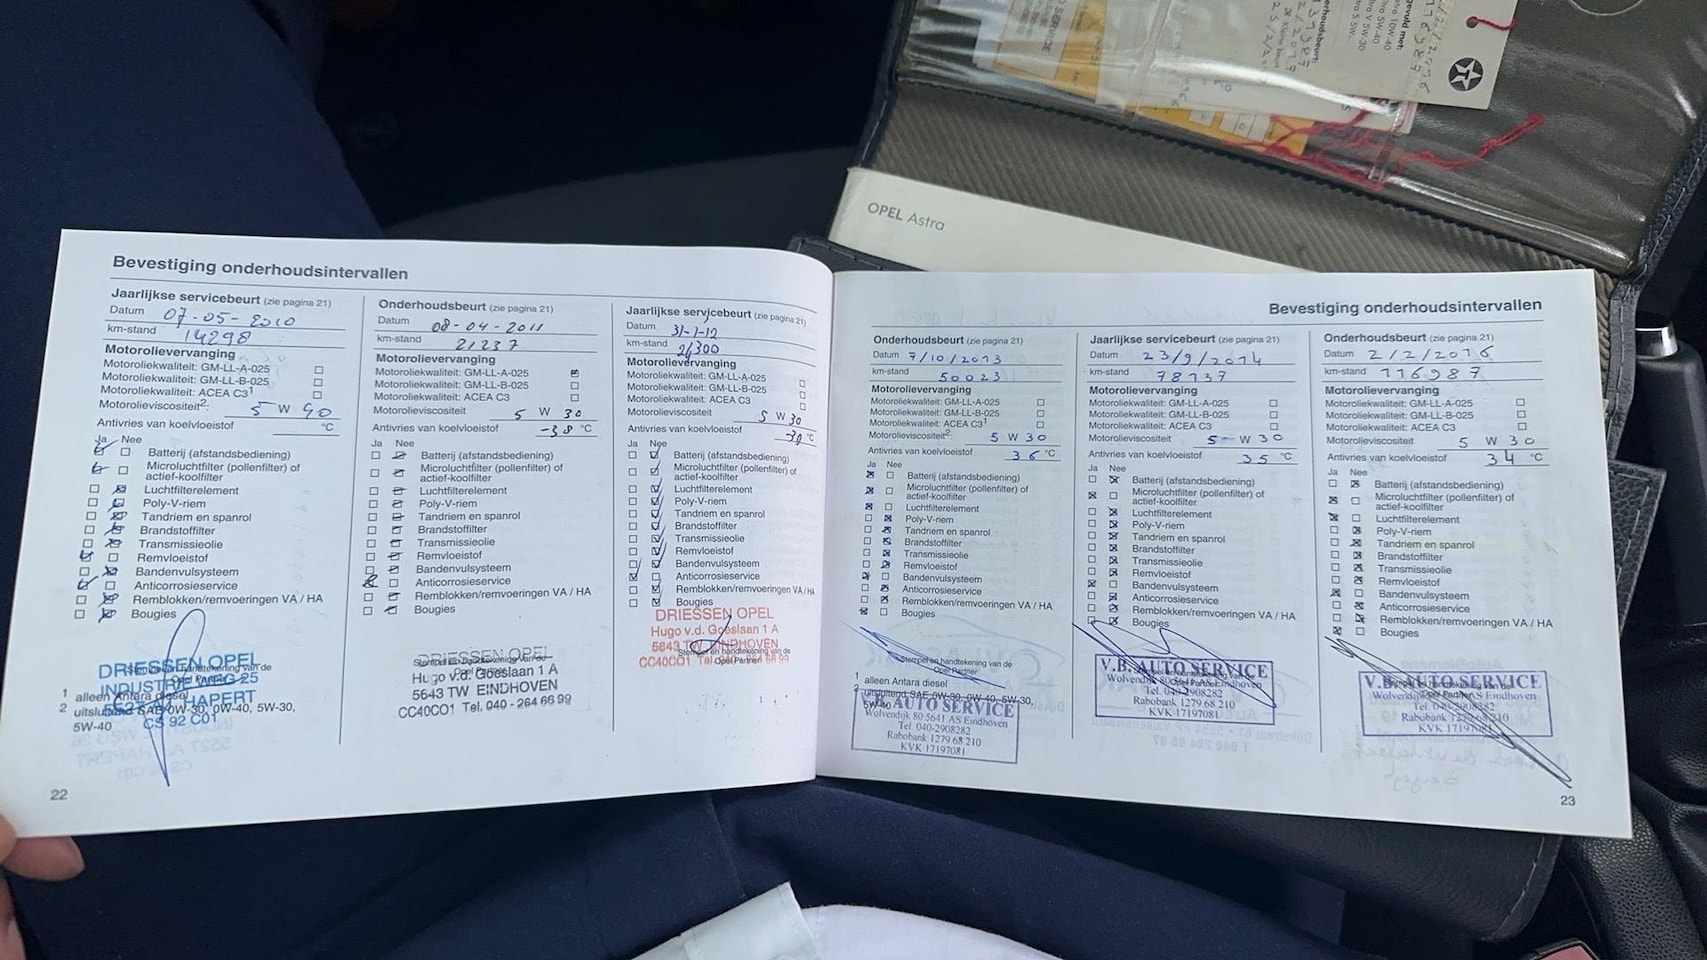 OPEL Astra
Bevestiging onderhoudsintervallen
Jaarlijkse servicebeurt (zie pagina 21)
Datum 07-05-2010
km-stand 14298
Motorolievervanging
Motoroliekwaliteit: GM-LL-A-025
Motoroliekwaliteit: GM-LL-B-025
Motoroliekwaliteit: ACEA C3¹
Motorolieviscositeit²: 5 W 40
Antivries van koelvloeistof °C
Ja Nee
Batterij (afstandsbediening)
Microluchtfilter (pollenfilter) of
actief-koolfilter
Luchtfilterelement
Poly-V-riem
Tandriem en spanrol
Brandstoffilter
Transmissieolie
Remvloeistof
Bandenvulsysteem
Anticorrosieservice
Remblokken/remvoeringen VA / HA
Bougies
Stempel en handtekening van de
Opel Partner
DRIESSEN OPEL
INDUSTRIEWEG 25
HAPERT
CS 92 C01
1 alleen Antara diesel
2 uitsluitend SAE 0W-30, 0W-40, 5W-30,
5W-40
22
Onderhoudsbeurt (zie pagina 21)
Datum 08-04-2011
km-stand 21237
Motorolievervanging
Motoroliekwaliteit: GM-LL-A-025
Motoroliekwaliteit: GM-LL-B-025
Motoroliekwaliteit: ACEA C3
Motorolieviscositeit 5 W 30
Antivries van koelvloeistof -38 °C
Ja Nee
Batterij (afstandsbediening)
Microluchtfilter (pollenfilter) of
actief-koolfilter
Luchtfilterelement
Poly-V-riem
Tandriem en spanrol
Brandstoffilter
Transmissieolie
Remvloeistof
Bandenvulsysteem
Anticorrosieservice
Remblokken/remvoeringen VA / HA
Bougies
Stempel en handtekening van de
Opel Partner
DRIESSEN OPEL
Hugo v.d. Goeslaan 1 A
5643 TW EINDHOVEN
CC40CO1 Tel. 040 - 264 66 99
Jaarlijkse servicebeurt (zie pagina 21)
Datum 31-1-12
km-stand
Motorolievervanging
Motoroliekwaliteit: GM-LL-A-025
Motoroliekwaliteit: GM-LL-B-025
Motoroliekwaliteit: ACEA C3
Motorolieviscositeit 5 W 30
Antivries van koelvloeistof -30 °C
Ja Nee
Batterij (afstandsbediening)
Microluchtfilter (pollenfilter) of
actief-koolfilter
Luchtfilterelement
Poly-V-riem
Tandriem en spanrol
Brandstoffilter
Transmissieolie
Remvloeistof
Bandenvulsysteem
Anticorrosieservice
Remblokken/remvoeringen VA / HA
Bougies
DRIESSEN OPEL
Hugo v.d. Goeslaan 1 A
5643 TW EINDHOVEN
CC40CO1 Tel 040 264 66 99
Stempel en handtekening van de
Opel Partner
Bevestiging onderhoudsintervallen
Onderhoudsbeurt (zie pagina 21)
Datum 7/10/2013
km-stand 50023
Motorolievervanging
Motoroliekwaliteit: GM-LL-A-025
Motoroliekwaliteit: GM-LL-B-025
Motoroliekwaliteit: ACEA C3¹
Motorolieviscositeit²: 5 W 30
Antivries van koelvloeistof 36 °C
Ja Nee
Batterij (afstandsbediening)
Microluchtfilter (pollenfilter) of
actief-koolfilter
Luchtfilterelement
Poly-V-riem
Tandriem en spanrol
Brandstoffilter
Transmissieolie
Remvloeistof
Bandenvulsysteem
Anticorrosieservice
Remblokken/remvoeringen VA / HA
Bougies
Stempel en handtekening van de
Opel Partner
1 alleen Antara diesel
2 uitsluitend SAE 0W-30, 0W-40, 5W-30,
5W-40
V.B. AUTO SERVICE
Wolvendijk 80 5641 AS Eindhoven
Tel. 040-2908282
Rabobank 1279 68 210
KVK 17197081
Jaarlijkse servicebeurt (zie pagina 21)
Datum 23/9/2014
km-stand 78137
Motorolievervanging
Motoroliekwaliteit: GM-LL-A-025
Motoroliekwaliteit: GM-LL-B-025
Motoroliekwaliteit: ACEA C3
Motorolieviscositeit 5 W 30
Antivries van koelvloeistof 35 °C
Ja Nee
Batterij (afstandsbediening)
Microluchtfilter (pollenfilter) of
actief-koolfilter
Luchtfilterelement
Poly-V-riem
Tandriem en spanrol
Brandstoffilter
Transmissieolie
Remvloeistof
Bandenvulsysteem
Anticorrosieservice
Remblokken/remvoeringen VA / HA
Bougies
V.B. AUTO SERVICE
Wolvendijk 80 5641 AS Eindhoven
Tel. 040-2908282
Rabobank 1279 68 210
KVK 17197081
Onderhoudsbeurt (zie pagina 21)
Datum 2/2/2016
km-stand 116987
Motorolievervanging
Motoroliekwaliteit: GM-LL-A-025
Motoroliekwaliteit: GM-LL-B-025
Motoroliekwaliteit: ACEA C3
Motorolieviscositeit 5 W 30
Antivries van koelvloeistof 34 °C
Ja Nee
Batterij (afstandsbediening)
Microluchtfilter (pollenfilter) of
actief-koolfilter
Luchtfilterelement
Poly-V-riem
Tandriem en spanrol
Brandstoffilter
Transmissieolie
Remvloeistof
Bandenvulsysteem
Anticorrosieservice
Remblokken/remvoeringen VA / HA
Bougies
V.B. AUTO SERVICE
Wolvendijk 80 5641 AS Eindhoven
Tel. 040-2908282
Rabobank 1279 68 210
KVK 17197081
23